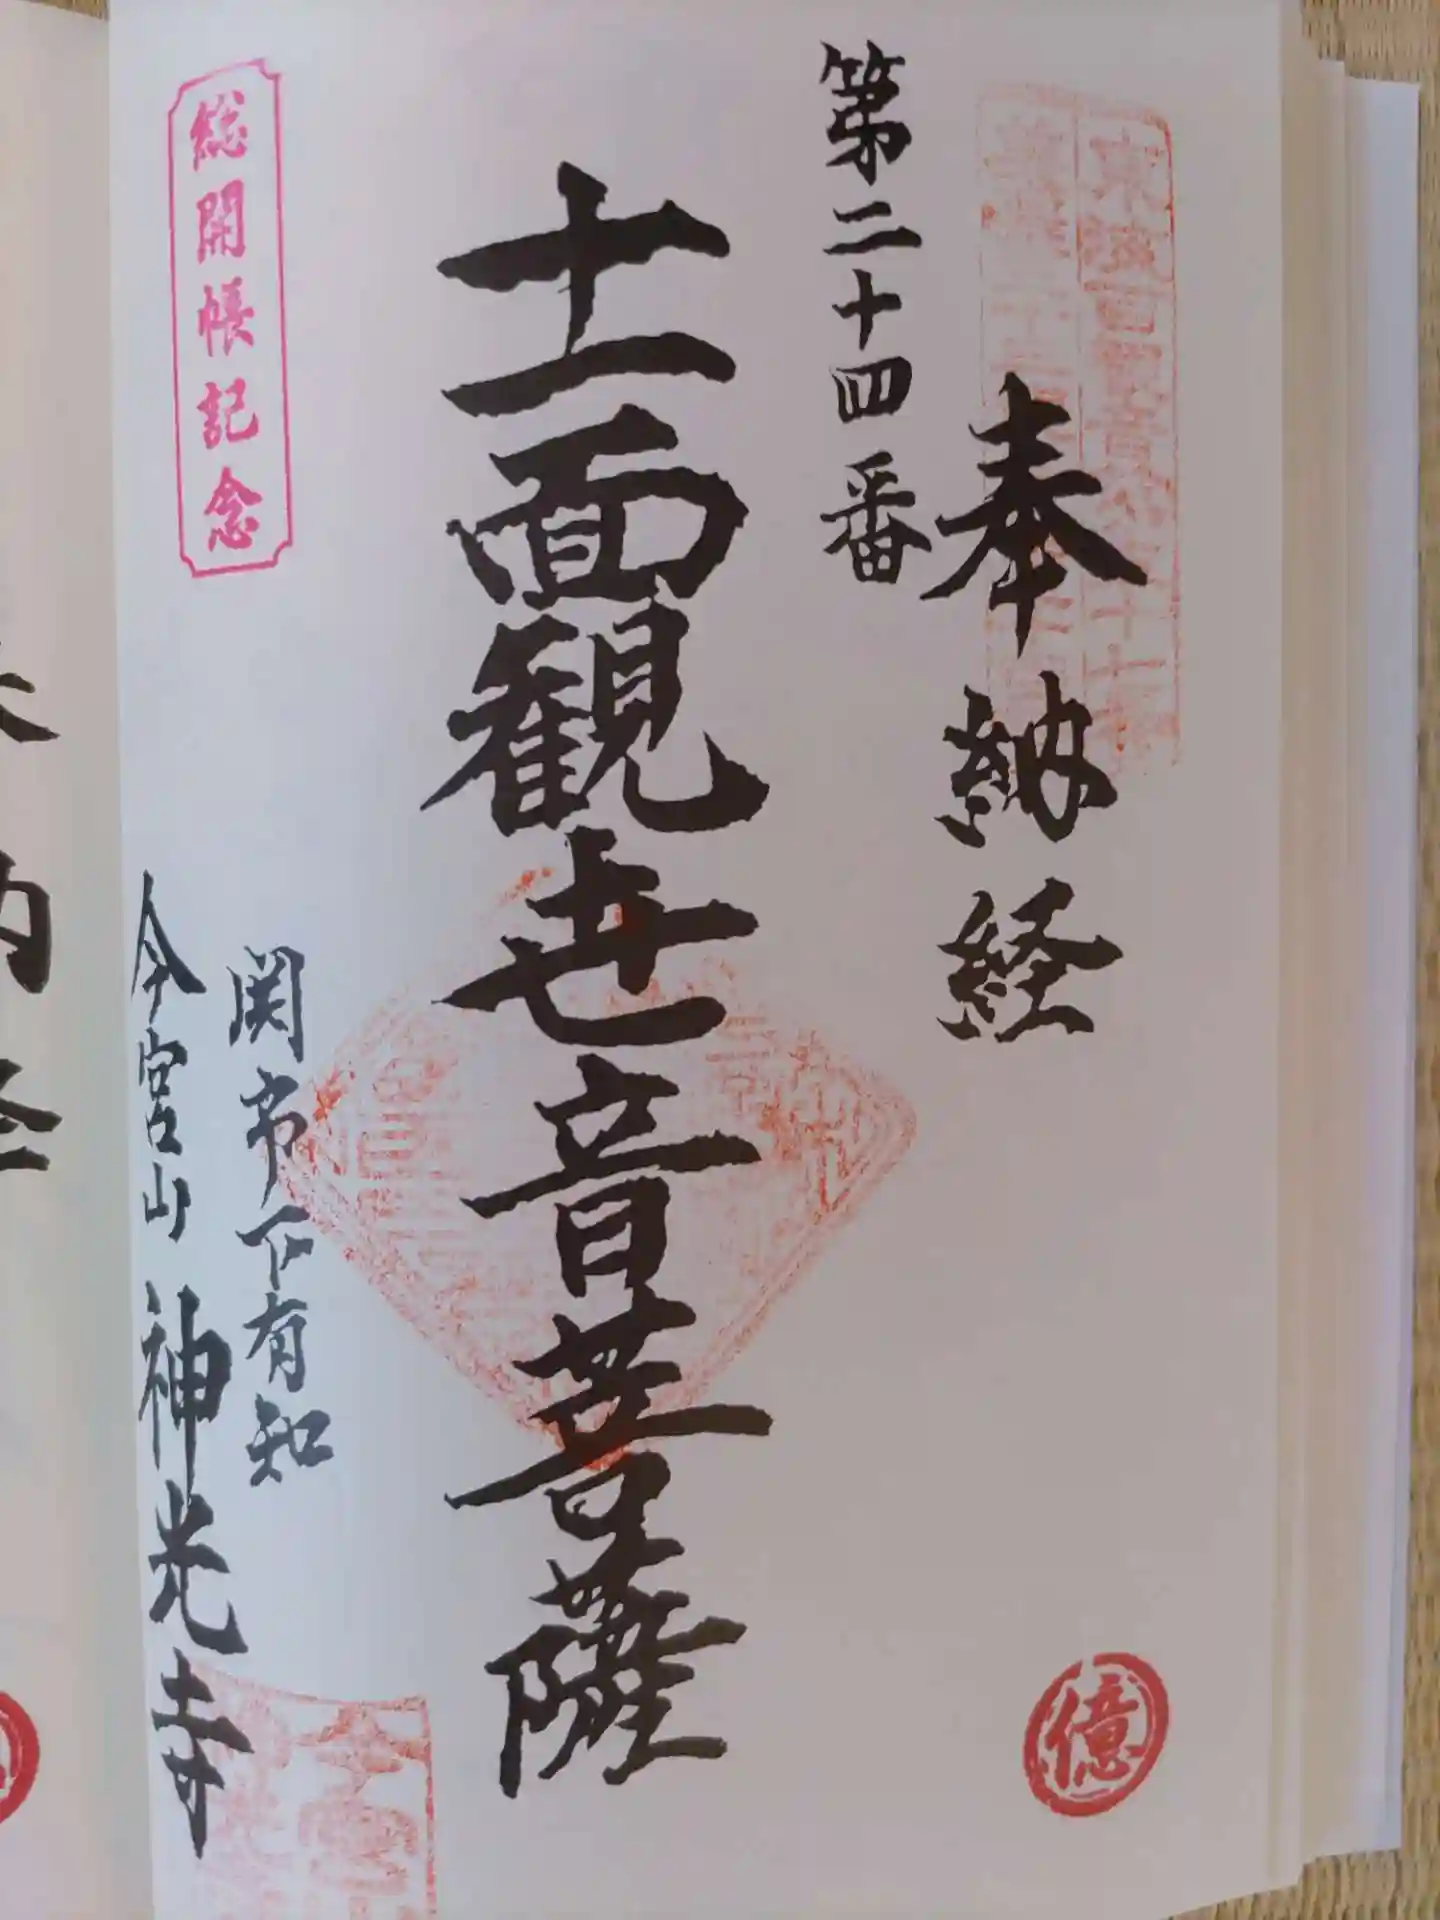 奉納経
第二十四番
十一面観世音菩薩
総開帳記念
関市下有知
今宮山 神光寺
億